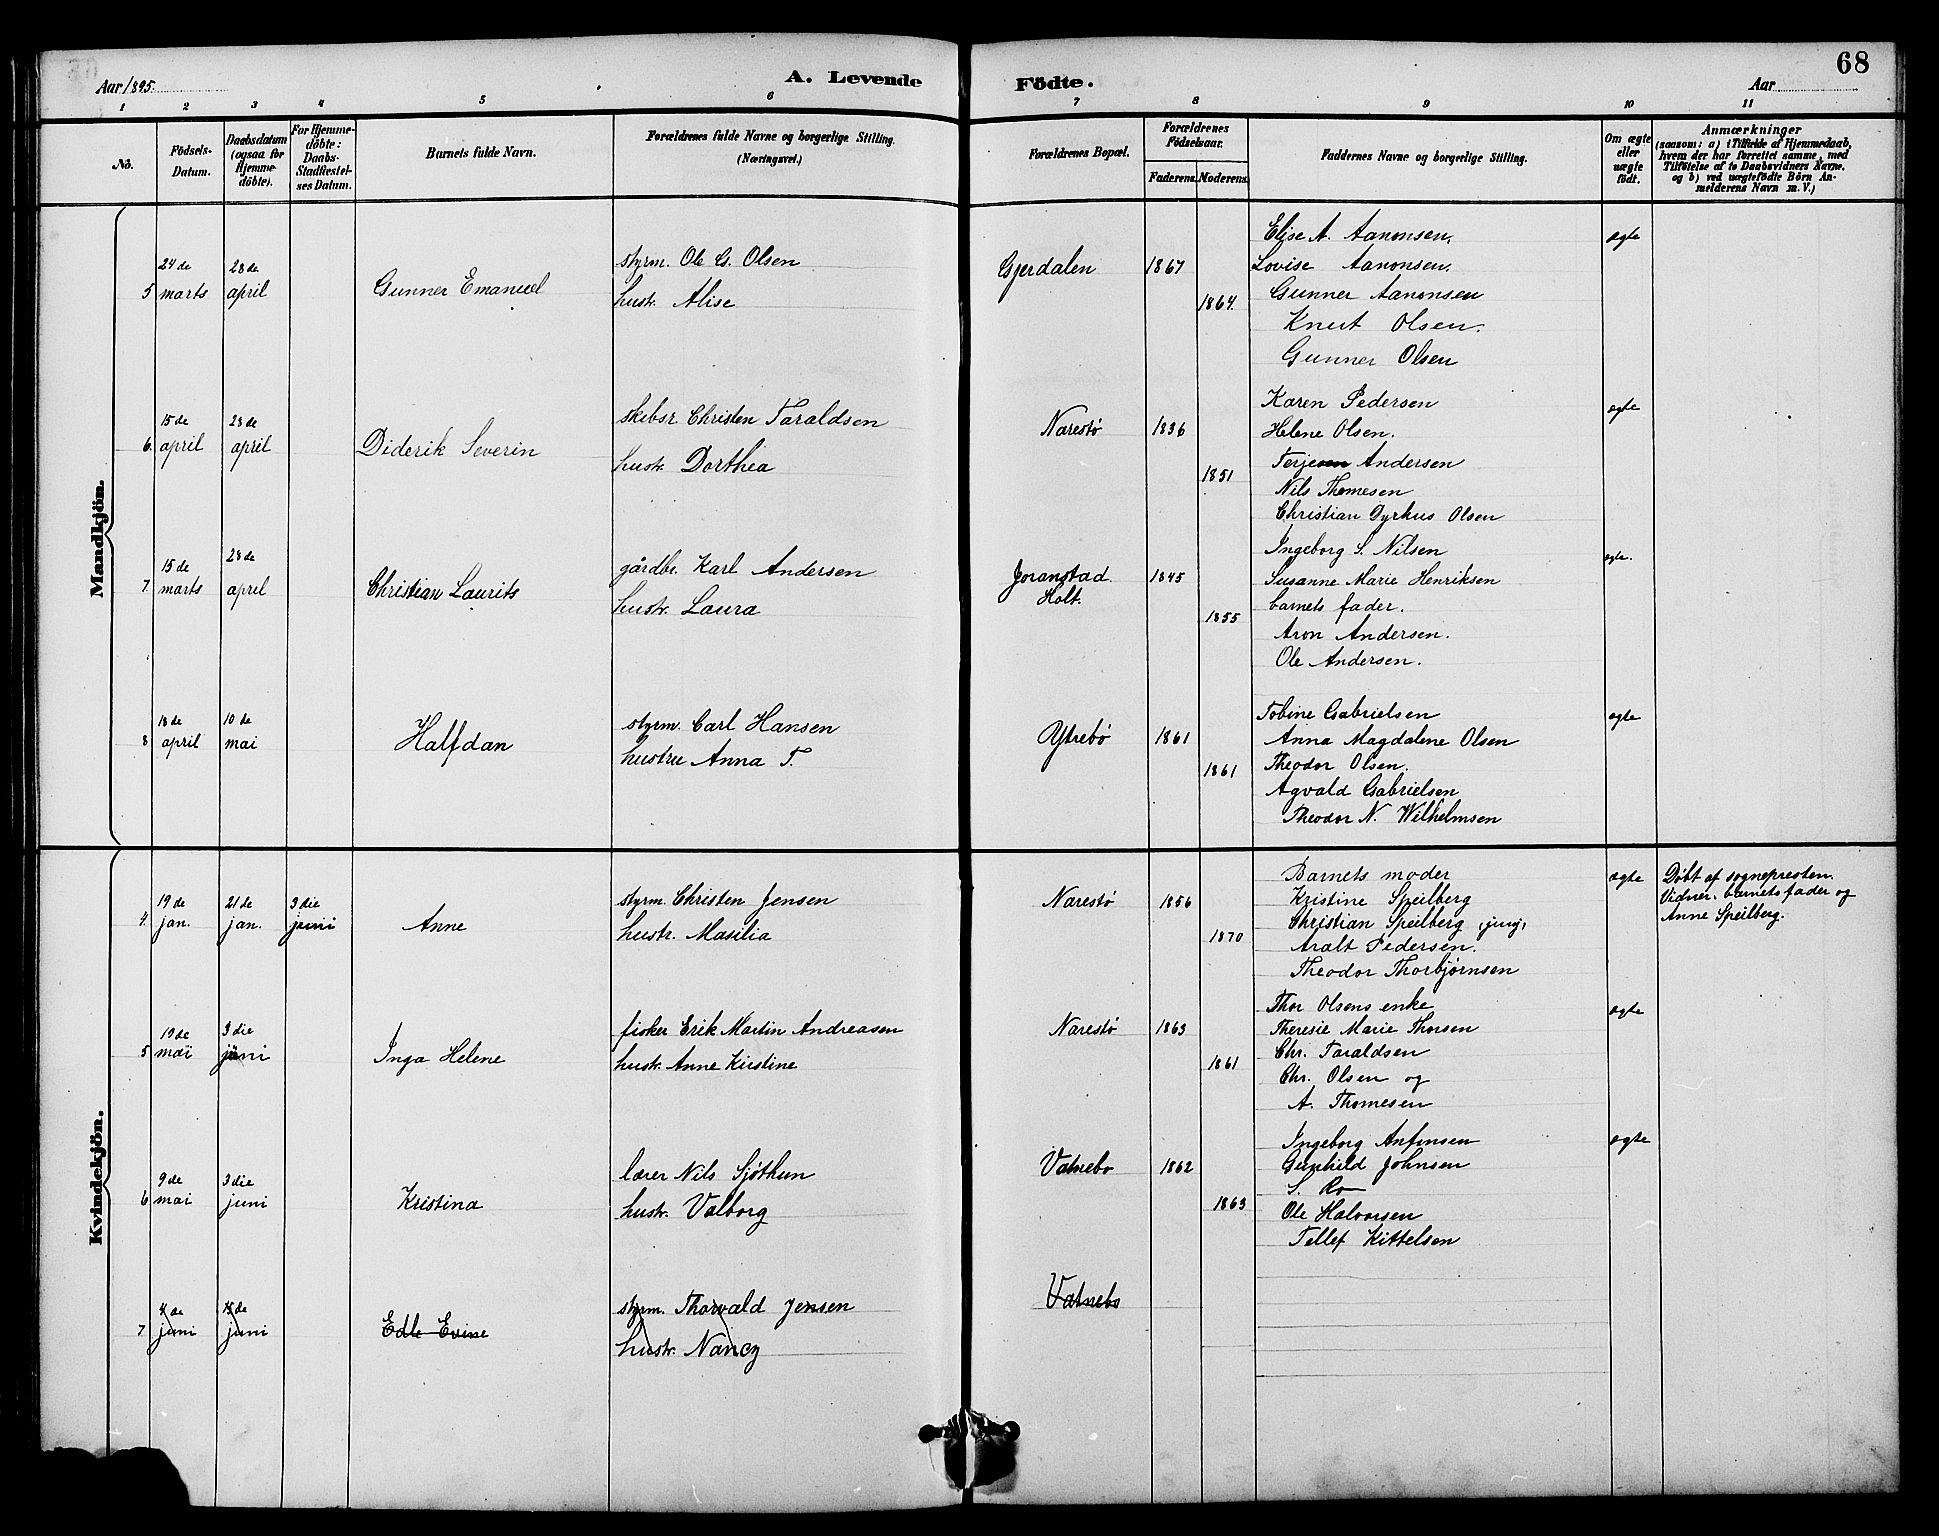 68
Aar 1895.
A. Levende Födte.
Aar
1 2 3 4 5 6 7 8 9 10 11
No.
Födsels-Datum.
Daabsdatum (ogsaa for Hjemme-döbte).
For Hjemme-döbte: Daabs-Stadfestel-ses Datum.
Barnets fulde Navn.
Forældrenes fulde Navne og borgerlige Stilling.
(Næringsvei.)
Forældrenes Bopæl.
Forældrenes Födselsaar.
Faderens. Moderens.
Faddernes Navne og borgerlige Stilling.
Om ægte eller uægte födt.
Anmærkninger
(saasom: a) i Tilfælde af Hjemmedaab,
hvem der har forrettet samme, med
Tilföielse af to Daabsvidners Navne,
og b) ved uægtefödte Börn An-
melderens Navn m. V.)
Mandkjön.
5 24de marts 28de april Gunner Emanuel
styrm. Ole G. Olsen
hustr. Alise
Gjerdalen 1867 1864.
Elise A. Aanonsen.
Lovise Aanonsen.
Gunner Aanonsen
Knut Olsen.
Gunner Olsen
ægte
6. 15de april 28de april Diderik Severin
skibsr. Christen Taraldsen
hustr. Dorthea
Narestø 1836 1851
Karen Pedersen
Helene Olsen.
Terjesen Andersen
Nils Thomesen
Christian Dyrhus Olsen
ægte
7. 15de marts 28de april Christian Laurits
gårdbr. Karl Andersen
hustr. Laura
Joranstad Holt. 1845 1855
Ingeborg S. Nilsen
Susanne Marie Henriksen
barnets fader.
Aron Andersen.
Ole Andersen.
ægte.
8 18de april 10de mai Halfdan
styrm. Carl Hansen
hustru Anna T.
Ytrebø 1861 1861
Tobine Gabrielsen
Anna Magdalene Olsen
Theodor Olsen.
Agvald Gabrielsen
Theodor N. Wilhelmsen
ægte
Kvindekjön.
4. 19de jan. 21de jan. 3die juni Anne
styrm. Christen Jensen
hustr. Masilia
Narestø 1856 1870
Barnets moder
Kristine Speilberg
Christian Speilberg (jun.)
Aralt Pedersen.
Theodor Thorbjørnsen
ægte
Døbt af sognepresten.
Vidner: barnets fader og
Anne Speilberg.
5 19de mai 3die juni Inga Helene
fisker Erik Martin Andreasen
hustr. Anne Kirstine
Narestø 1863 1861
Thor Olsens enke
Theresie Marie Thorsen
Chr. Taraldsen
Chr. Olsen og
A. Thomesen
ægte
6 9de mai 3die juni Kristina
lærer Nils Sjøthun
hustr. Valborg
Vatnebo 1862 1863
Ingeborg Anfinsen
Gunhild Johnsen
S. Ro
Ole Halvorsen
Tellef Kittelsen
ægte
7 4de juni juni Edle Evine
styrm. Thorvald Jensen
hustr. Nancy
Vatnebo